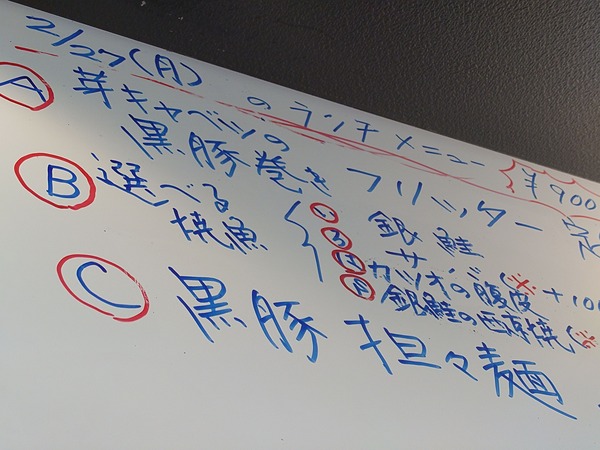 2/27(月)のランチメニュー ¥900
A 芽キャベツの
黒豚巻きフリッター
B 選べる
焼魚
い 銀鮭
ろ サバ
は カツオの腹皮(※+100
に 銀鮭の西京焼(※
C 黒豚担々麺